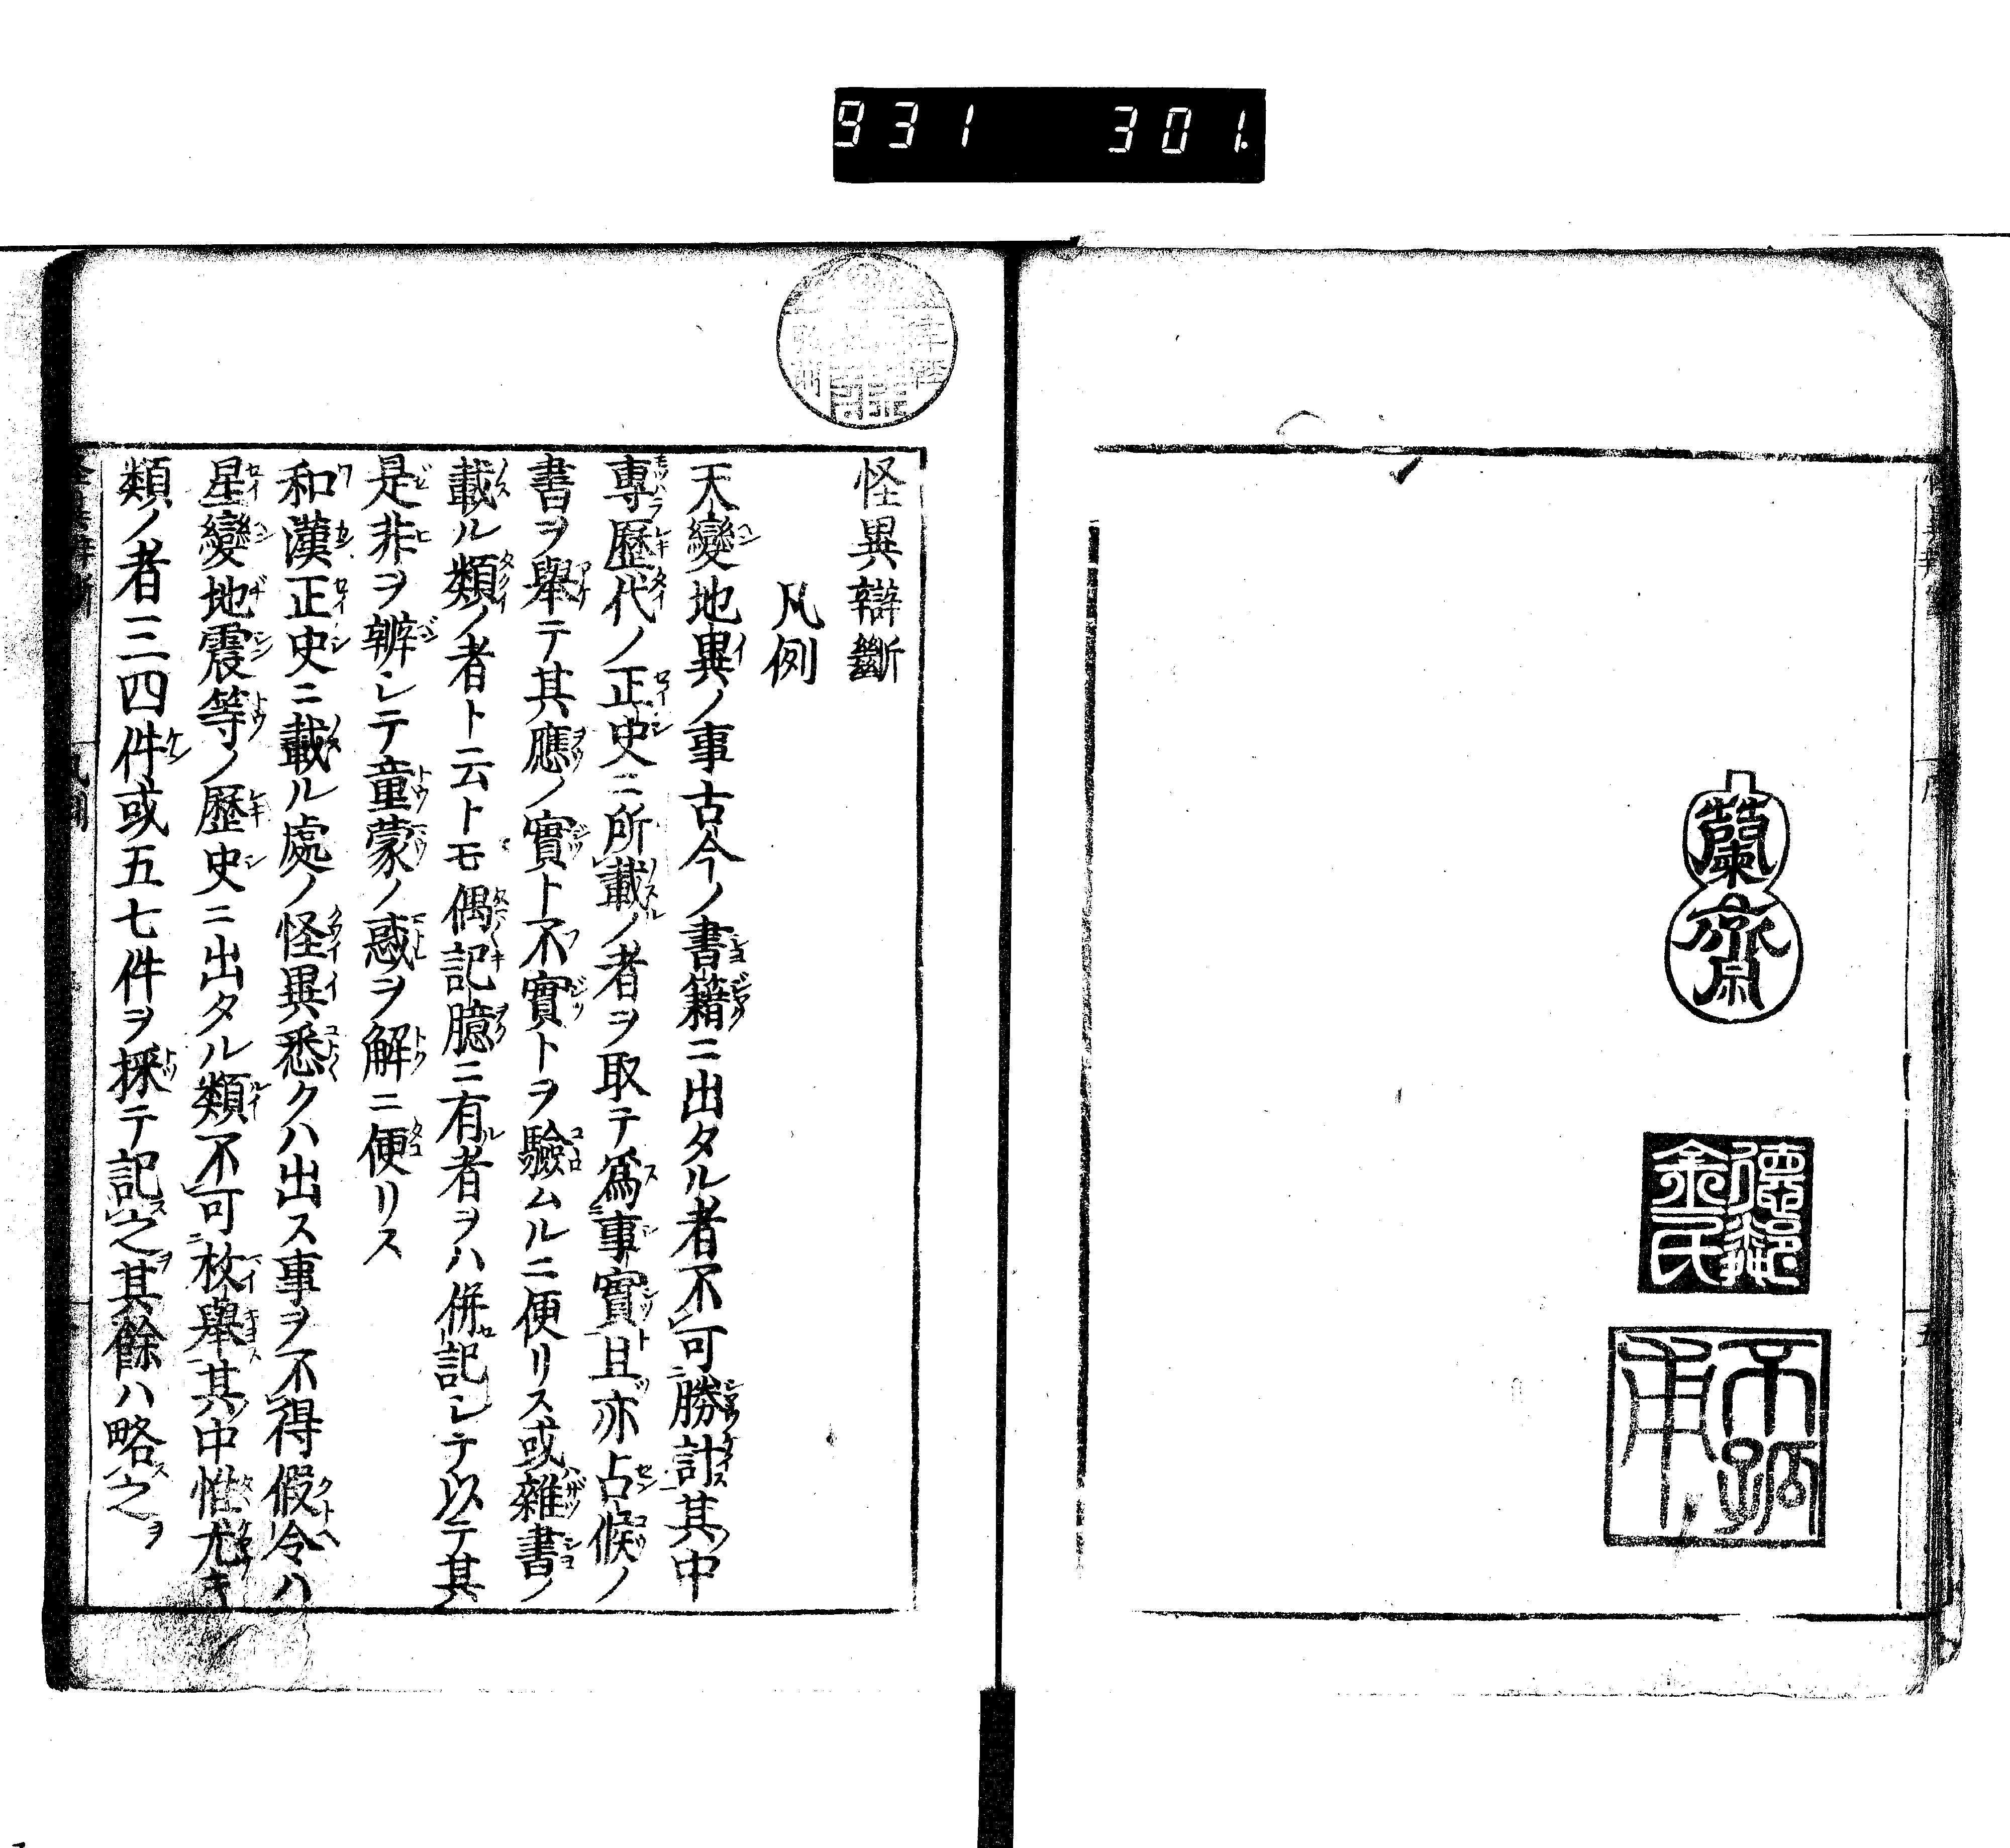 931 301.
蘭
齋
怪異辯斷
凡例
天變地異ノ事古今ノ書籍ニ出タル者不可勝計其中
專歷代ノ正史ニ所載ノ者ヲ取テ爲事實且亦占候ノ
書ヲ舉テ其應ノ實ト不實トヲ驗ムルニ便リス或雜書ノ
載ル類ノ者ト云トモ偶記臆ニ有者ヲハ併記シテ以テ其
是非ヲ辨シテ童蒙ノ惑ヲ解ニ便リス
和漢正史ニ載ル處ノ怪異悉クハ出ス事ヲ不得假令ハ
星變地震等ノ歷史ニ出タル類不可枚舉其中惟尤キ
類ノ者三四件或五七件ヲ採テ記之其餘ハ略之